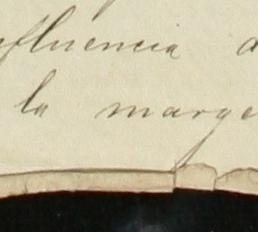 nfluencia d
la marge